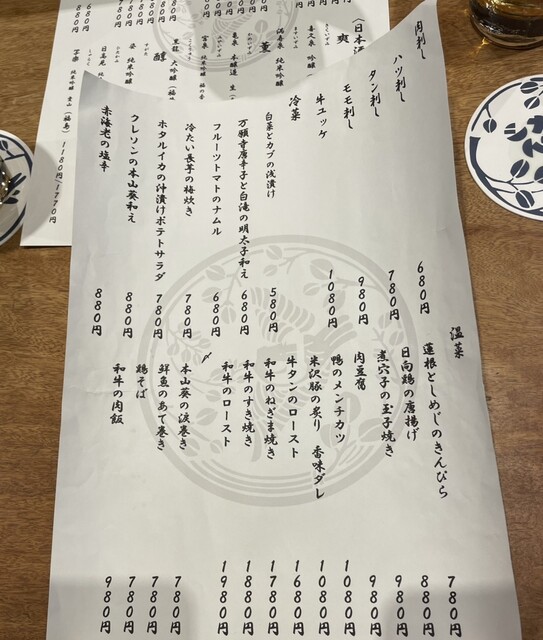 肉刺し
ハツ刺し 680円
タン刺し 780円
モモ刺し 980円
牛ユッケ 1080円
冷菜
白菜とカブの浅漬け 580円
万願寺唐辛子と白滝の明太子和え 680円
フルーツトマトのナムル 680円
冷たい長芋の梅炊き 780円
ホタルイカの汁漬けポテトサラダ 780円
クレソンの本山葵和え 880円
赤海老の塩辛 880円
温菜
蓮根としめじのきんぴら 780円
日向鶏の唐揚げ 880円
煮穴子の玉子焼き 980円
肉豆腐 980円
鴨のメンチカツ 1080円
米沢豚の炙り 香味ダレ 1080円
牛タンのロースト 1680円
和牛のねぎま焼き 1780円
和牛のすき焼き 1880円
和牛のロースト 1980円
〆
本山葵の涙巻き 780円
鮮魚のあて巻き 780円
鶏そば 780円
和牛の肉飯 980円
爽
喜久泉 吟醸
満寿泉 純米吟醸
薫
醇
姿 純米吟醸
1180円/1770円